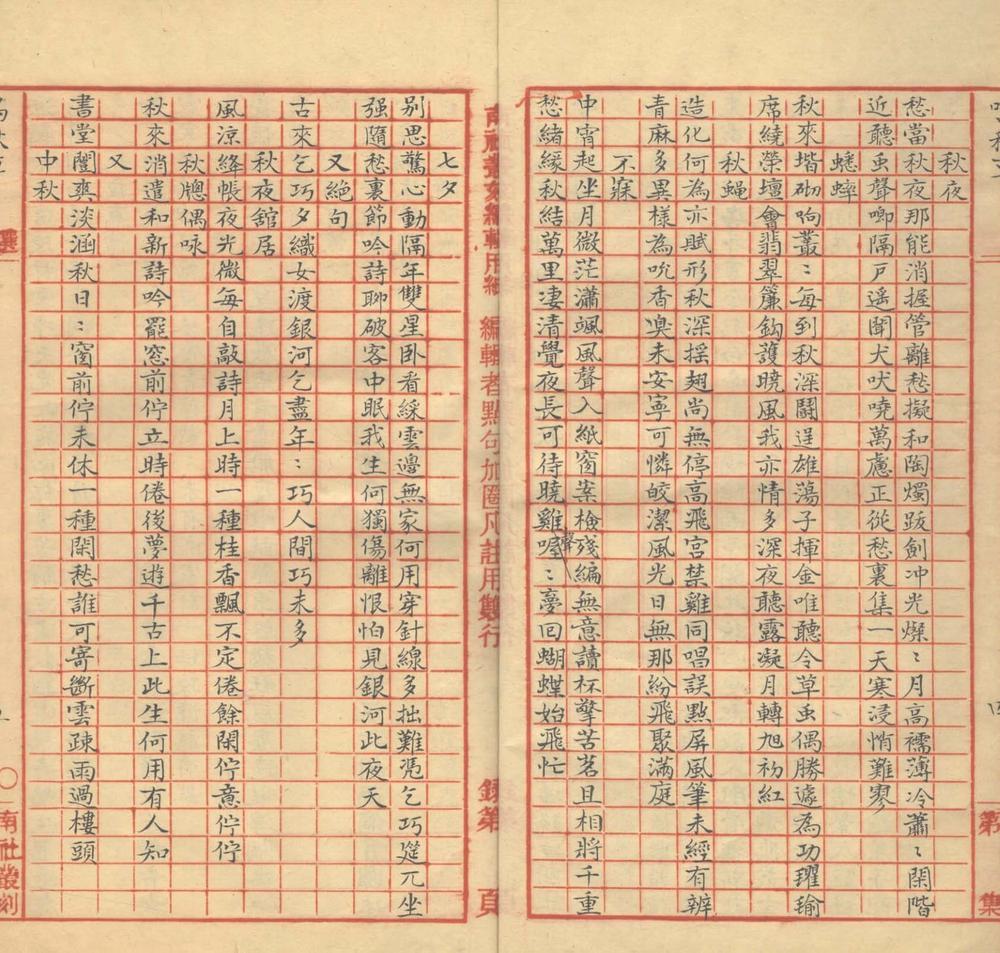 第 集
秋夜
愁當秋夜那能消握管離愁擬和陶燭跋劍冲光燦〻月高襦薄冷蕭〻閑階
近聽虫聲喞隔戸遥聞犬吠嘵萬慮正從愁裏集一天寒浸悄難寥
蟋蟀
秋來堦砌响叢〻每到秋深鬪逞雄蕩子揮金唯聽令草虫偶勝遽為功瓘瑜
席繞榮壇會翡翠簾鈎護曉風我亦情多深夜聽露凝月轉旭初紅
秋蝇
造化何為亦賦形秋深摇翅尚無停高飛宫禁雞同唱誤㸃屏風筆未經有辨
青麻多異樣為吮香澳未安寧可憐皎潔風光日無那紛飛聚滿庭
不寐
中宵起坐月微茫瀟颯風聲入紙窗案檢殘編無意讀杯擎苦茗且相將千重
愁緒緣秋結萬里凄清覺夜長可待曉雞聲喔〻夢回蝴蝶始飛忙
南社叢刻 編輯用紙 編輯者點句加圈凡註用雙行 錄第 頁
七夕
别思驚心動隔年雙星卧看綵雲邊無家何用穿針線多拙難凭乞巧筵兀坐
强隨愁裏節吟詩聊破客中眠我生何獨傷離恨怕見銀河此夜天
又絕句
古來乞巧夕織女渡銀河乞盡年〻巧人間巧未多
秋夜舘居
風凉絳帳夜光微每自敲詩月上時一種桂香飄不定倦餘閑佇意佇佇
秋牕偶咏
秋來消遣和新詩吟罷窓前佇立時倦後夢遊千古上此生何用有人知
又
書堂闓爽淡涵秋日〻窗前佇未休一種閑愁誰可寄斷雲疎雨過樓頭
中秋
選
南社叢刻